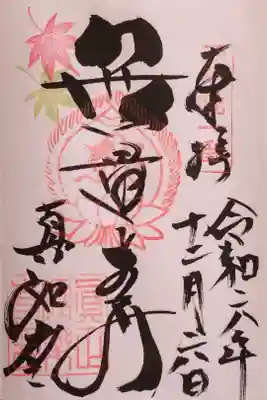 奉拝
令和六年
十二月六日
無量寿
真如堂